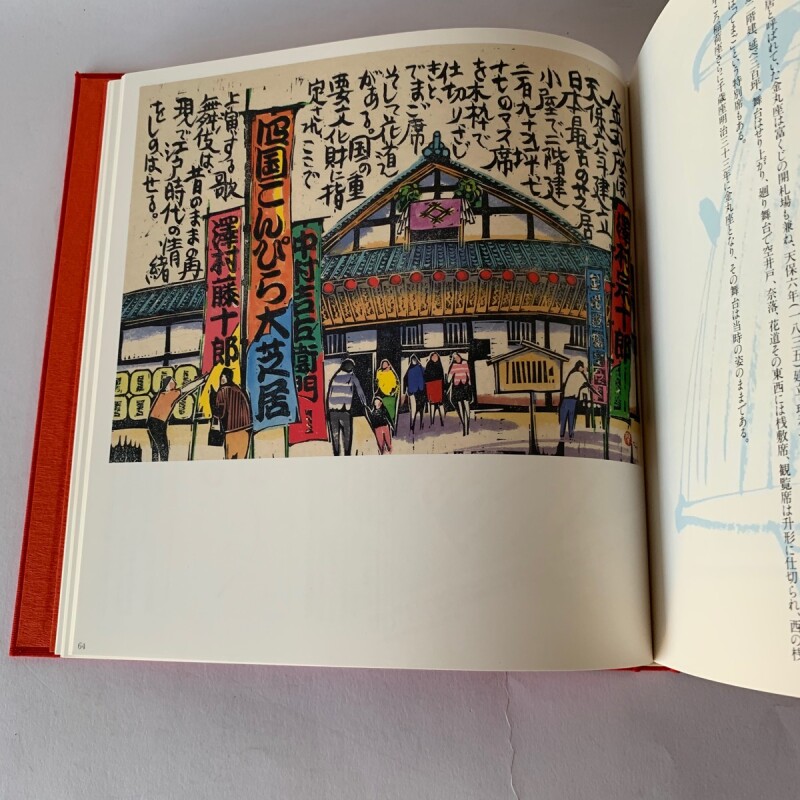 金丸座は
天保六年建立
日本最古の芝居
小屋で二階建
十七のマス席
を木枠で
仕切りさじ
きと、
でまご席
そして花道
がある。国の重
要文化財に指
定され、ここで
上演する歌
舞伎は、昔のままの再
現で江戸時代の情緒
をしのばせる。
澤村宗十郎
中村吉右衛門
四国こんぴら大芝居
澤村藤十郎
64
居と呼ばれていた金丸座は富くじの開札場も兼ね、天保六年(一八三五)
延べ三百坪、舞台はせり上がり、廻り舞台で空井戸、奈落、花道その東西には桟敷席、観覧席は升形に仕切られ、西の桟
はてまごという特別席もある。
稲荷座さらに千歳座明治三十三年に金丸座となり、その舞台は当時の姿のままである。